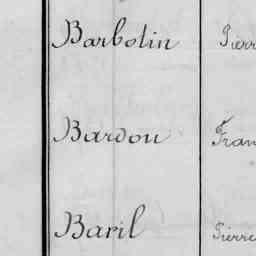 Barbotin Pierr
Bardou Fran
Baril Pierre